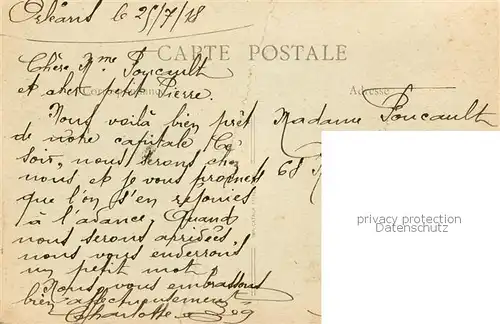 Orléans le 25/7/18
CARTE POSTALE
Chère Mme Foucault
et cher petit Pierre.
Correspondance
Adresse
Nous voilà bien prêt
de notre capitale Ce
soir, nous serons chez
nous et je vous promets
que l'on s'en réjouies
à l'avance, Quand
nous serons arridées,
nous vous enderrons
un petit mot.
Nous vous embrassons
bien affectueusement
Charlotte
Madame Foucault
68
privacy protection
Datenschutz